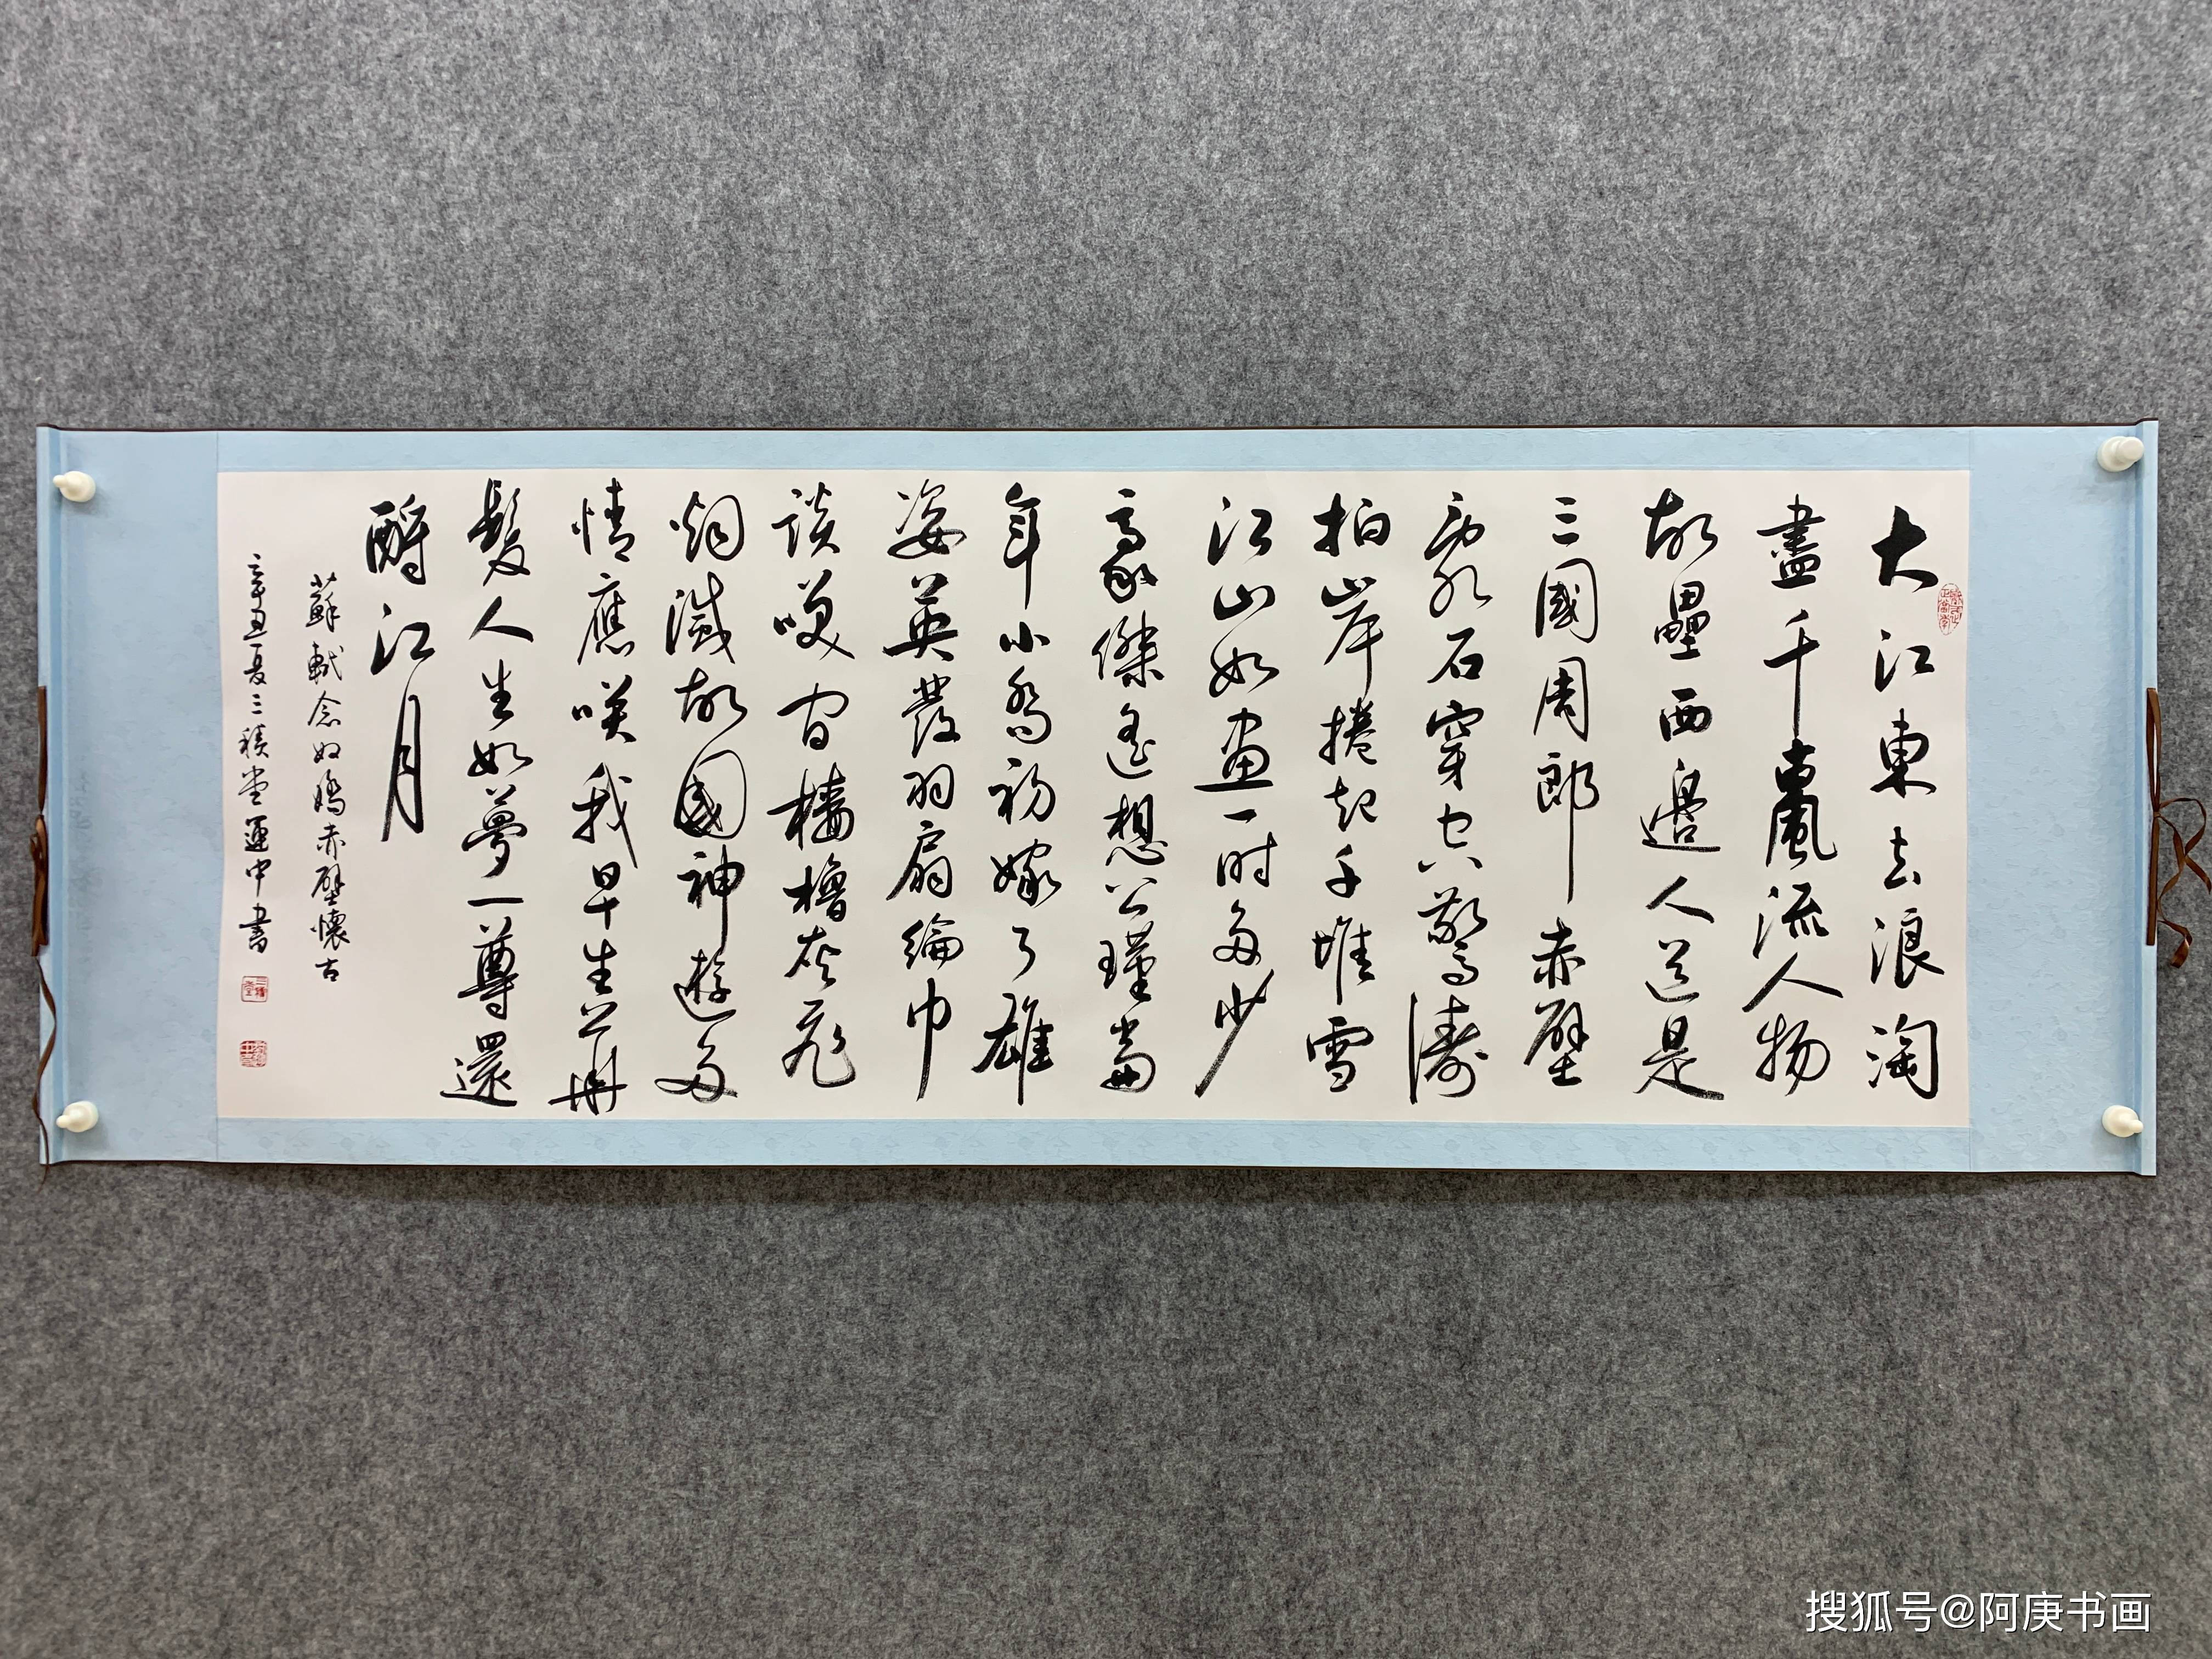 大江東去浪淘
盡千古風流人物
故壘西邊人道是
三國周郎赤壁
亂石穿空驚濤
拍岸捲起千堆雪
江山如畫一時多少
豪傑遙想公瑾當
年小喬初嫁了雄
姿英發羽扇綸巾
談咲間檣櫓灰飛
烟滅故國神遊多
情應咲我早生華
髮人生如夢一尊還
酹江月
蘇軾念奴嬌赤壁懷古
辛丑夏三積堂運中書
搜狐号@阿庚书画